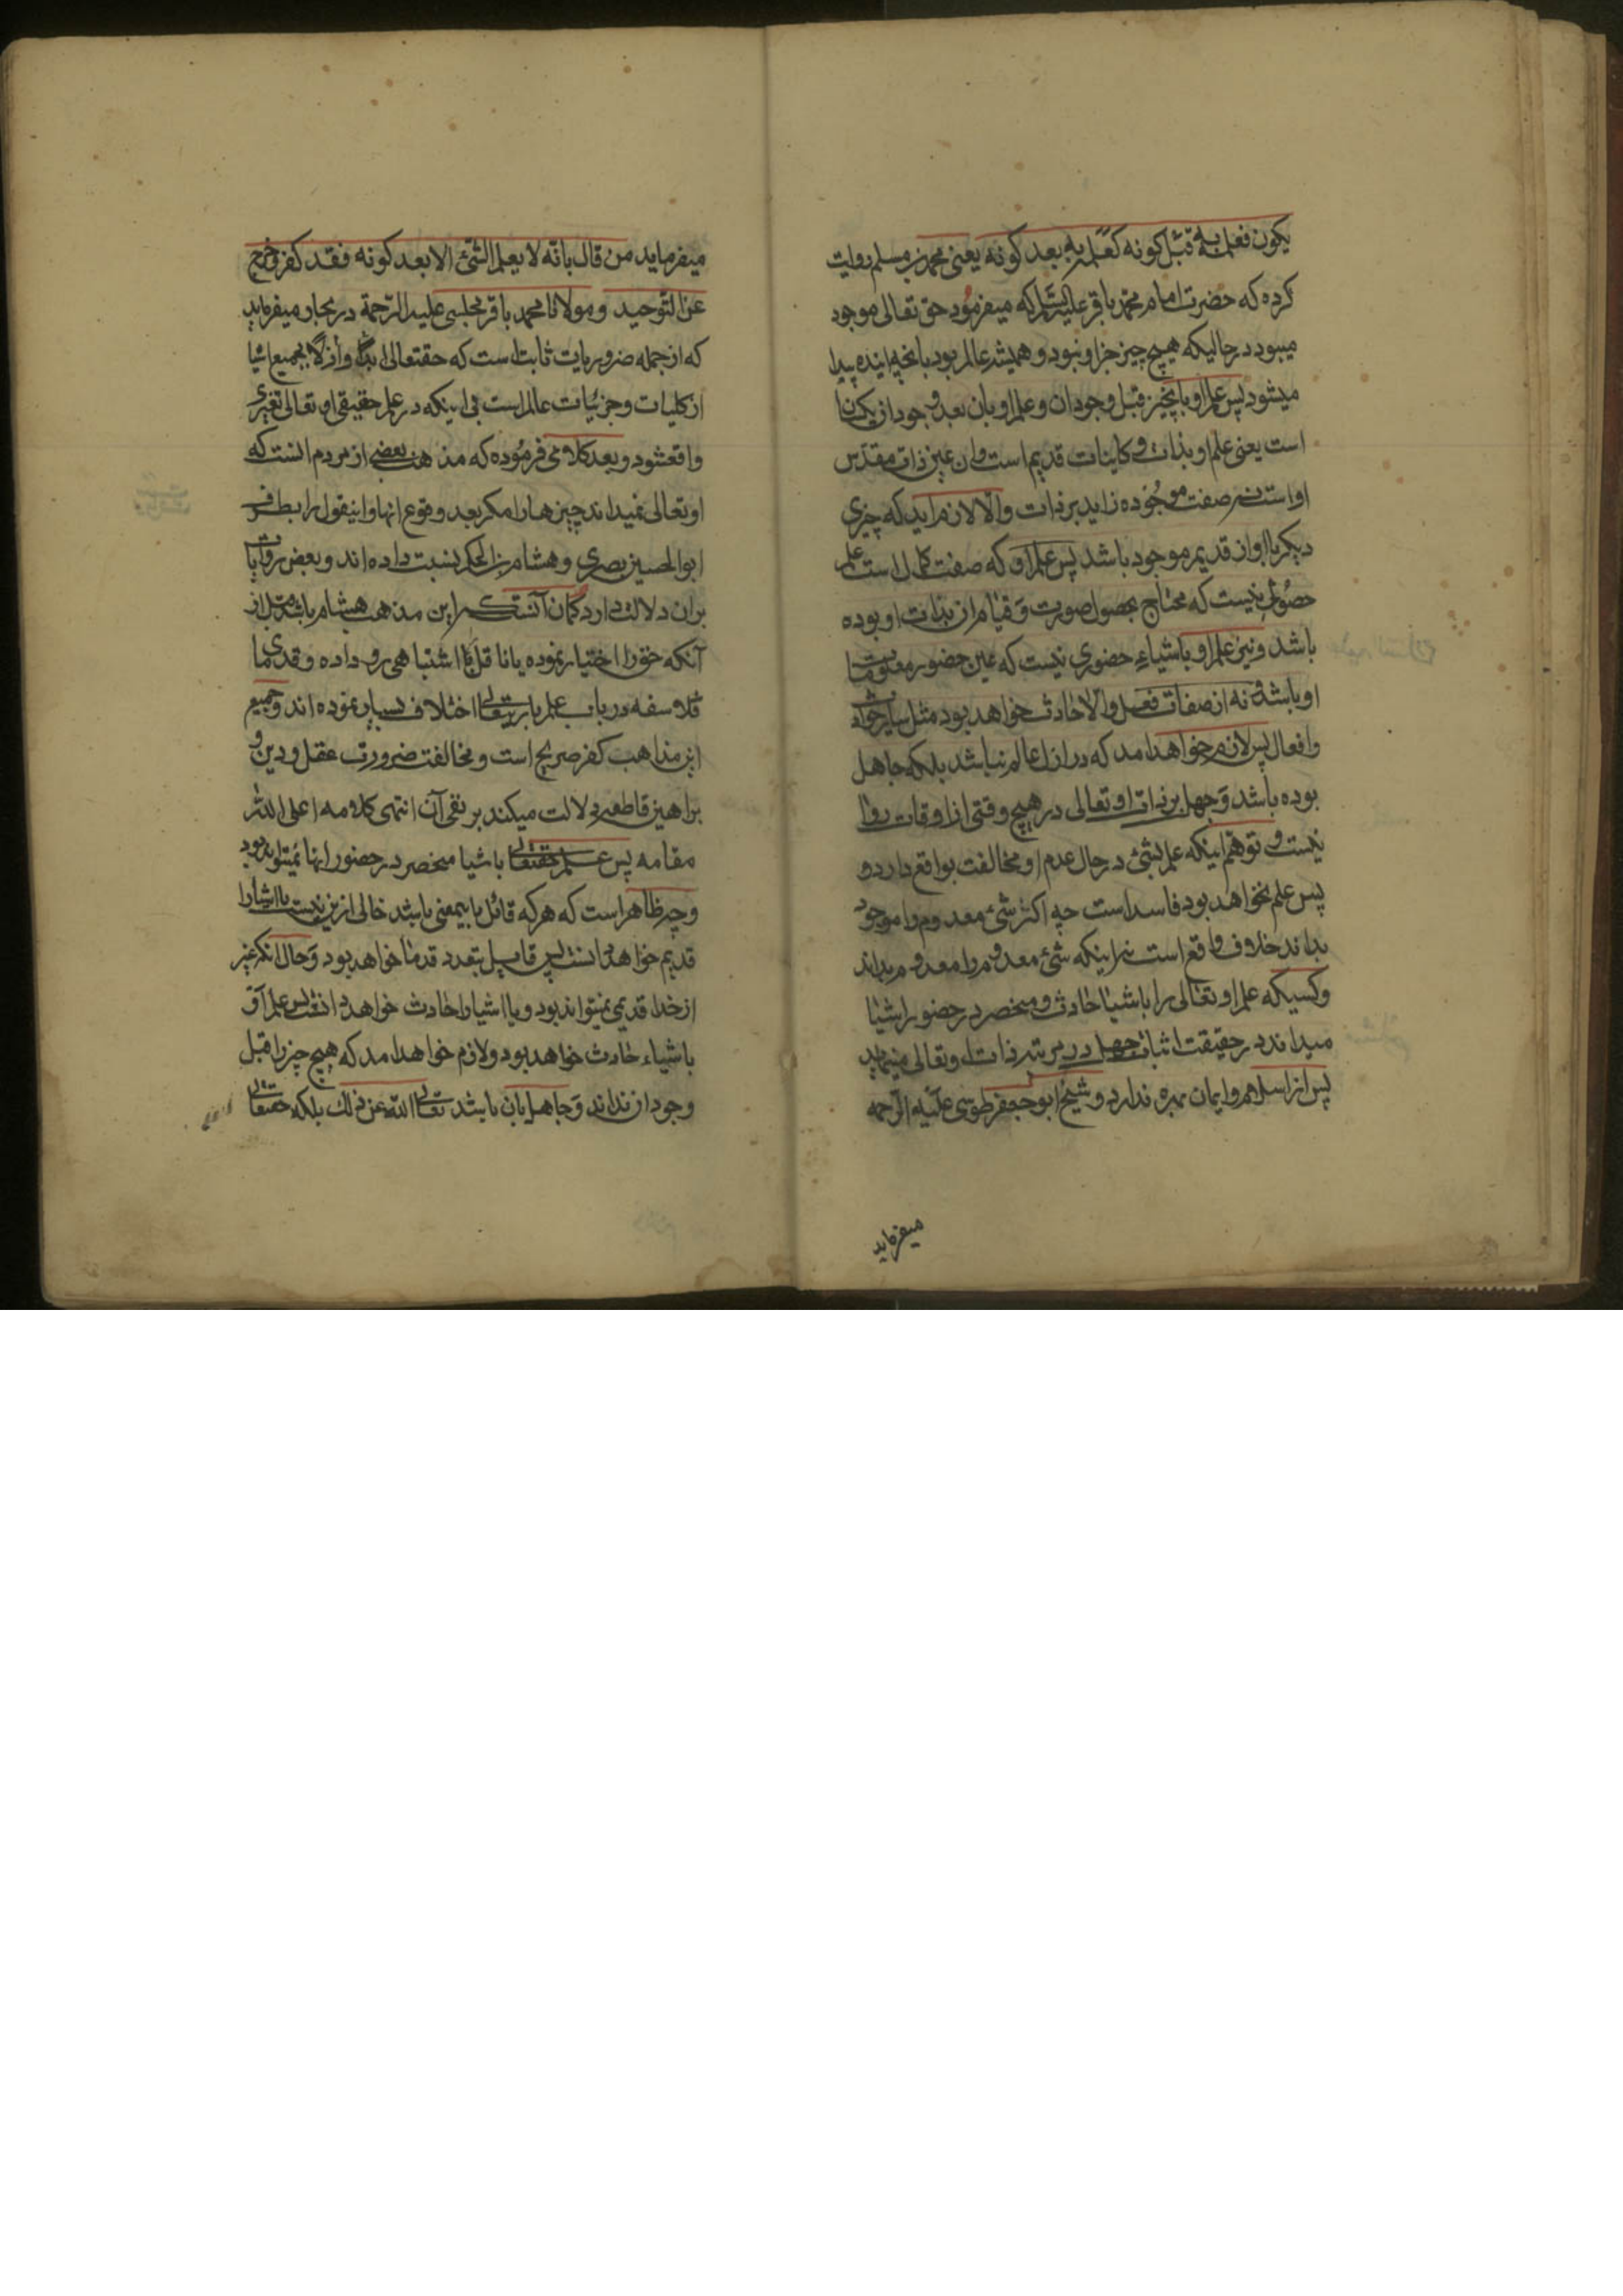 یکون فعلمه به قبل کونه کعلمه به بعد کونه یعنی محمد بن مسلم روایت
کرده که حضرت امام محمد باقر علیه السّلم که میفرمود حق تعالی موجود
میبود در حالیکه هیچ چیز جز او نبود و همیشه عالم بود بانچه اینده پیدا
میشود پس علم او بانچیز قبل وجود ان و علم او بان بعد وجود ان یکسان
است یعنی علم او بذات و کاینات قدیم است و ان عین ذات مقدّس
اواست نه صفت موجوده زاید بر ذات والّا لازم اید که چیزی
دیکر باا و از قدیم موجود باشد پس علم او که صفت کمال است علم
حصُولی نیست که محتاج بحصول صورت وَ قیام ان بذات او بوده
باشد و نیز علم او باشیاء حضوری نیست که عین حضور معلومات
او باشد و نه از صفات فعل والّا حادث خواهد بود مثل سایر حوادث
وافعال پس لازم خواهد امد که در ازل عالم نباشد بلکه جاهل
بوده باشد وَ جهل بر ذات او تعالی در هیچ وقتی از اوقات روا
نیست و توهّم اینکه علم بشئ در حال عدم او مخالفت بواقع دارد و
پس علم نخواهد بود فاسد است چه اکر شئ معدوم را موجود
بداند خلاف واقع است نه اینکه شئ معدوم را معدوم بداند
وکسیکه علم او تعالی را باشیا حادث و منحصر در حضور اشیا
میداند در حقیقت اثبات جهل در مرتبه ذات او تعالی مینماید
پس از اسلام و ایمان بهره ندارد و شیخ ابو جعفر طوسی علیه الرّحمه
میفرماید
میفرماید من قال بانّه لا یعلم الشّئ الا بعد کونه فقد کفر و خرج
عن التّوحید و مولانا محمد باقر مجلسی علیه الرّحمة در بحار میفرماید
که از جمله ضروریات ثابت است که حقتعالی ابداً و ازلاً بجمیع اشیا
از کلیات و جزئیات عالم است بی اینکه در علم حقیقی او تعالی تغیری
واقعشود و بعد کلامی فرمُوده که مذهب بعضی از مردم انست که
او تعالی نمیداند چیزها را مکر بعد وقوع انها و اینقول را بطرف
ابوالحسین بصری و هشام بن الحکم نسبت داده اند و بعض روایات
بران دلالت دارد کمان آنست که این مذهب هشام باشد قبل از
آنکه حق را اختیار نموده یا ناقل را اشتباهی رو داده و قدمای
فلاسفه در باب علم باریتعالی اختلاف بسیار نموده اند و جمیع
این مذاهب کفر صریح است و مخالفت ضرورت عقل و دین و
براهین قاطعه دلالت میکند بر نفی آن انتهی کلامه اعلی اللّه
مقامه پس علم حقتعالی باشیا منحصر در حضور انها نمیتواند بود
وچه ظاهر است که هر که قائل باینمعنی باشد خالی ازین نیست یا اشیا را
قدیم خواهد دانست پس قایل بتعدد قدما خواهد بود وَ حال انکه غیر
از خدا قدیمی نمیتواند بود و یا اشیا را حادث خواهد دانست پس علم او
باشیاء حادث خواهد بود و لازم خواهد امد که هیچ چیز را قبل
وجود ان نداند وَ جاهل بان باشد تعالی اللّه عن ذلک بلکه حقتعالی